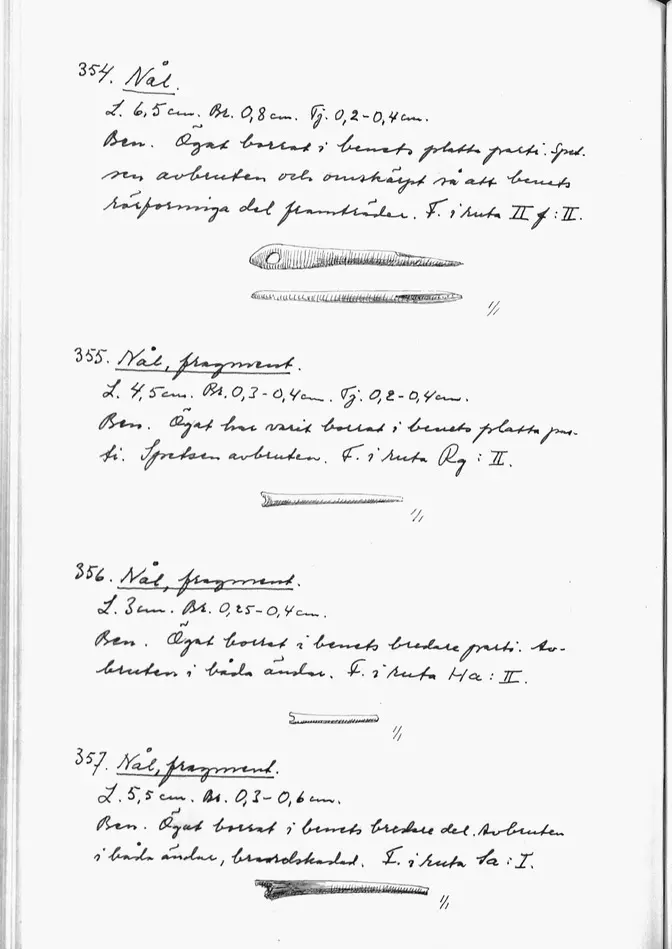 354. Nål.
L. 6,5 cm. Br. 0,8 cm. Tj. 0,2-0,4 cm.
Ben. Ögat borrat i benets platta parti. Spet-
sen avbruten och omskärpt så att benets
rörformiga del framträder. F. i ruta II f : II.
1/1
355. Nål, fragment.
L. 4,5 cm. Br. 0,3-0,4 cm. Tj. 0,2-0,4 cm.
Ben. Ögat har varit borrat i benets platta par-
ti. Spetsen avbruten. F. i ruta Rg : II.
1/1
356. Nål, fragment.
L. 3 cm. Br. 0,25-0,4 cm.
Ben. Ögat borrat i benets bredare parti. Av-
bruten i båda ändar. F. i ruta Ha : II.
1/1
357. Nål, fragment.
L. 5,5 cm. Br. 0,3-0,6 cm.
Ben. Ögat borrat i benets bredare del. Avbruten
i båda ändar, brandskadad. F. i ruta Sa : I.
1/1